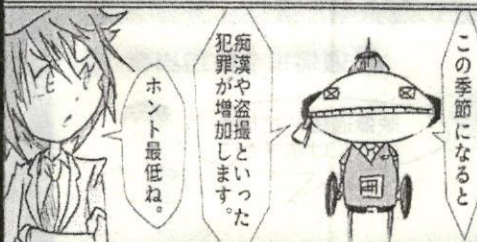 この季節になると
痴漢や盗撮といった
犯罪が増加します。
ホント最低ね。